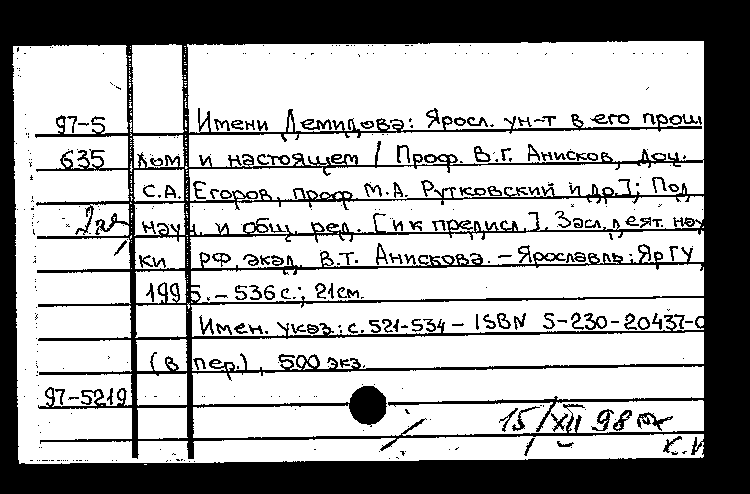 97-5 Имени Демидова: Яросл. ун-т в его прош
635 лом и настоящем / Проф. В.Г. Анисков, доц.
С.А. Егоров, проф. М.А. Рутковский и др.]; Под
2 науч. и общ. ред. [и к предисл.]. Засл. деят. нау
ки РФ, акад. В.Т. Анискова. – Ярославль: ЯрГУ,
1995. – 536 с.; 21см.
Имен. указ.: с. 521-534 – ISBN 5-230-20437-0
(в пер.), 500 экз.
97-5219
15/XII 98
К.И